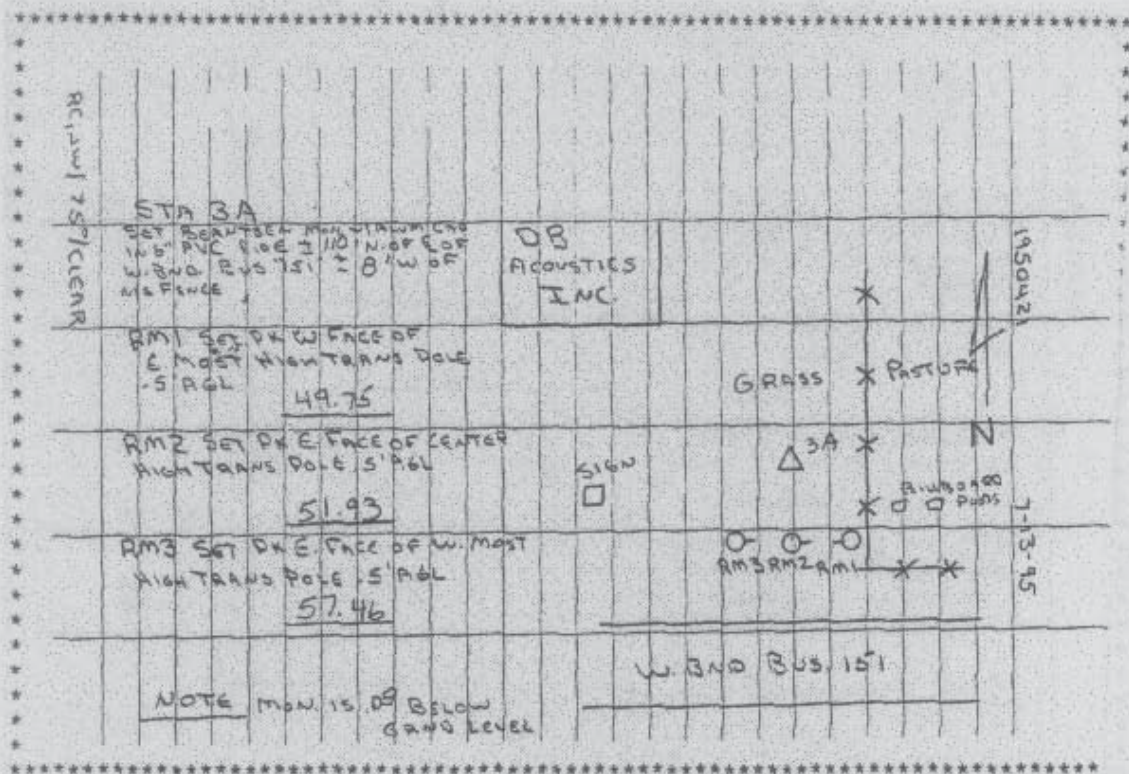 STA 3A
SET BERNTSEN MON W/ALUM CAP
IN 6" PVC PIPE ± 110' N. OF ℄ OF
W. BND BUS 151 ± 8' W OF
N/S FENCE
RM1 SET PK W FACE OF
E MOST HIGH TRANS POLE
.5 AGL
49.75
RM2 SET PK E FACE OF CENTER
HIGH TRANS POLE .5' AGL
51.93
RM3 SET PK E. FACE OF W. MOST
HIGH TRANS POLE .5' AGL
57.46
NOTE MON. IS .09 BELOW
GRND LEVEL
DB
ACOUSTICS
INC.
GRASS
PASTURE
N
3A
SIGN
BILLBOARD
RM3 RM2 RM1
W. BND BUS. 151
75°/CLEAR
1950421
7-13-95